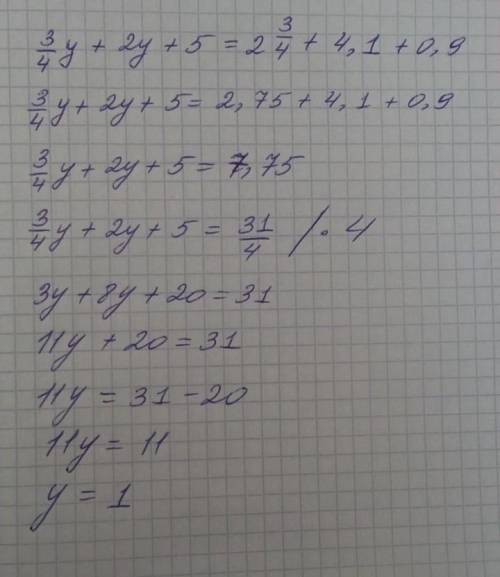 3/4 y + 2y + 5 = 2 3/4 + 4,1 + 0,9
3/4 y + 2y + 5 = 2,75 + 4,1 + 0,9
3/4 y + 2y + 5 = 7,75
3/4 y + 2y + 5 = 31/4 / · 4
3y + 8y + 20 = 31
11y + 20 = 31
11y = 31 - 20
11y = 11
y = 1